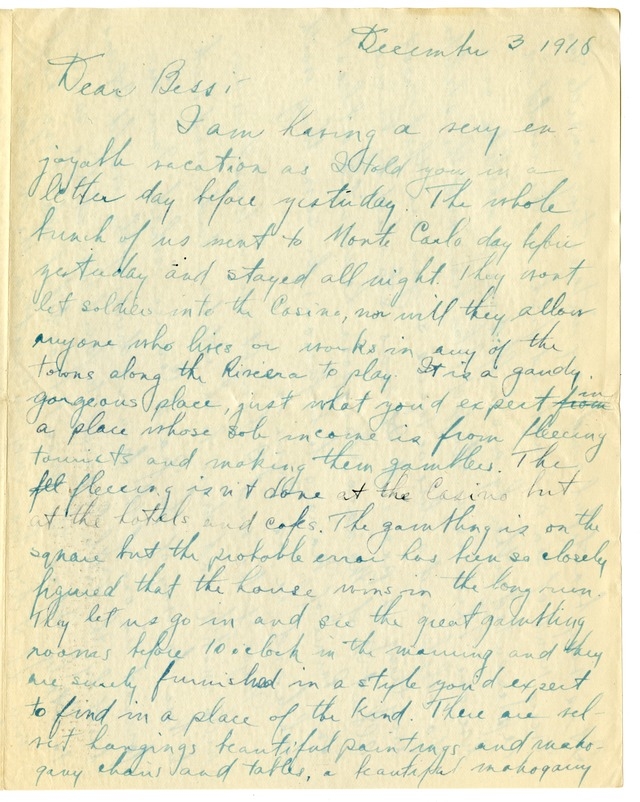 December 3 1918
Dear Bess:
I am having a very en-
joyable vacation as I told you in a
letter day before yesterday. The whole
bunch of us went to Monte Carlo day before
yesterday and stayed all night. They wont
let soldiers into the Casino, nor will they allow
anyone who lives or works in any of the
towns along the Riviera to play. It is a gaudy
gorgeous place, just what you'd expect from in
a place whose sole income is from fleecing
tourists and making them gamblers. The
fleecing isn't done at the Casino but
at the hotels and cafes. The gambling is on the
square but the probable error has been so closely
figured that the house wins in the long run.
They let us go in and see the great gambling
rooms before 10 oclock in the morning and they
are surely furnished in a style you'd expect
to find in a place of the kind. There are vel-
vet hangings beautiful paintings and maho-
gany chairs and tables, a beautiful mahogany